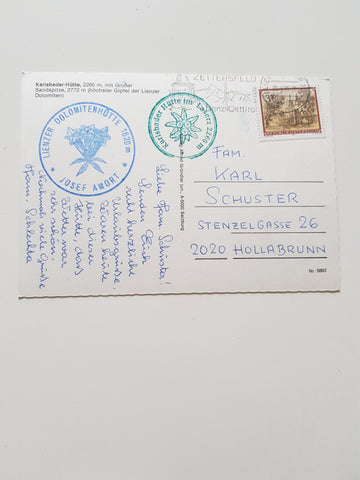 Karlsbader-Hütte, 2260 m, mit Großer
Sandspitze, 2772 m (höchster Gipfel der Lienzer
Dolomiten)
LIENZER DOLOMITENHÜTTE 1620 m
JOSEF AMORT
Karlsbader Hütte im Laserz 2260 m
ZETTERSFELD
Lienz/Osttirol
Liebe Fam. Schuster!
Senden Euch
recht herzliche
Urlaubsgrüße.
Waren heute
bei dieser
Hütte, das
Wetter war
sehr schön.
Nochmals viele Grüße
Fam.
FAM.
KARL
SCHUSTER
STENZELGASSE 26
2020 HOLLABRUNN
jun., A5020 Salzburg
Nr. 5963